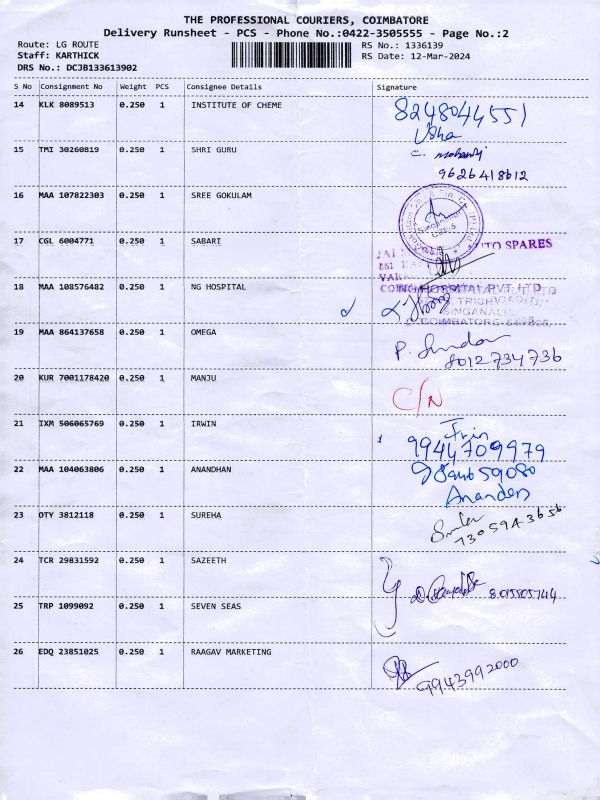 THE PROFESSIONAL COURIERS, COIMBATORE
Delivery Runsheet - PCS - Phone No.:0422-3505555 - Page No.:2
Route: LG ROUTE RS No.: 1336139
Staff: KARTHICK RS Date: 12-Mar-2024
DRS No.: DCJB133613902
S No Consignment No Weight PCS Consignee Details Signature
14 KLK 8089513 0.250 1 INSTITUTE OF CHEME 8248044551
Usha
15 TMI 30260819 0.250 1 SHRI GURU
9626418612
16 MAA 107822303 0.250 1 SREE GOKULAM
17 CGL 6004771 0.250 1 SABARI
UTO SPARES
18 MAA 108576482 0.250 1 NG HOSPITAL
SINGANALL
19 MAA 864137658 0.250 1 OMEGA
8012734736
20 KUR 7001178420 0.250 1 MANJU C/N
21 IXM 506065769 0.250 1 IRWIN
9944709979
22 MAA 104063806 0.250 1 ANANDHAN
23 OTY 3812118 0.250 1 SUREHA
7305943656
24 TCR 29831592 0.250 1 SAZEETH
25 TRP 1099092 0.250 1 SEVEN SEAS
26 EDQ 23851025 0.250 1 RAAGAV MARKETING
9943992000